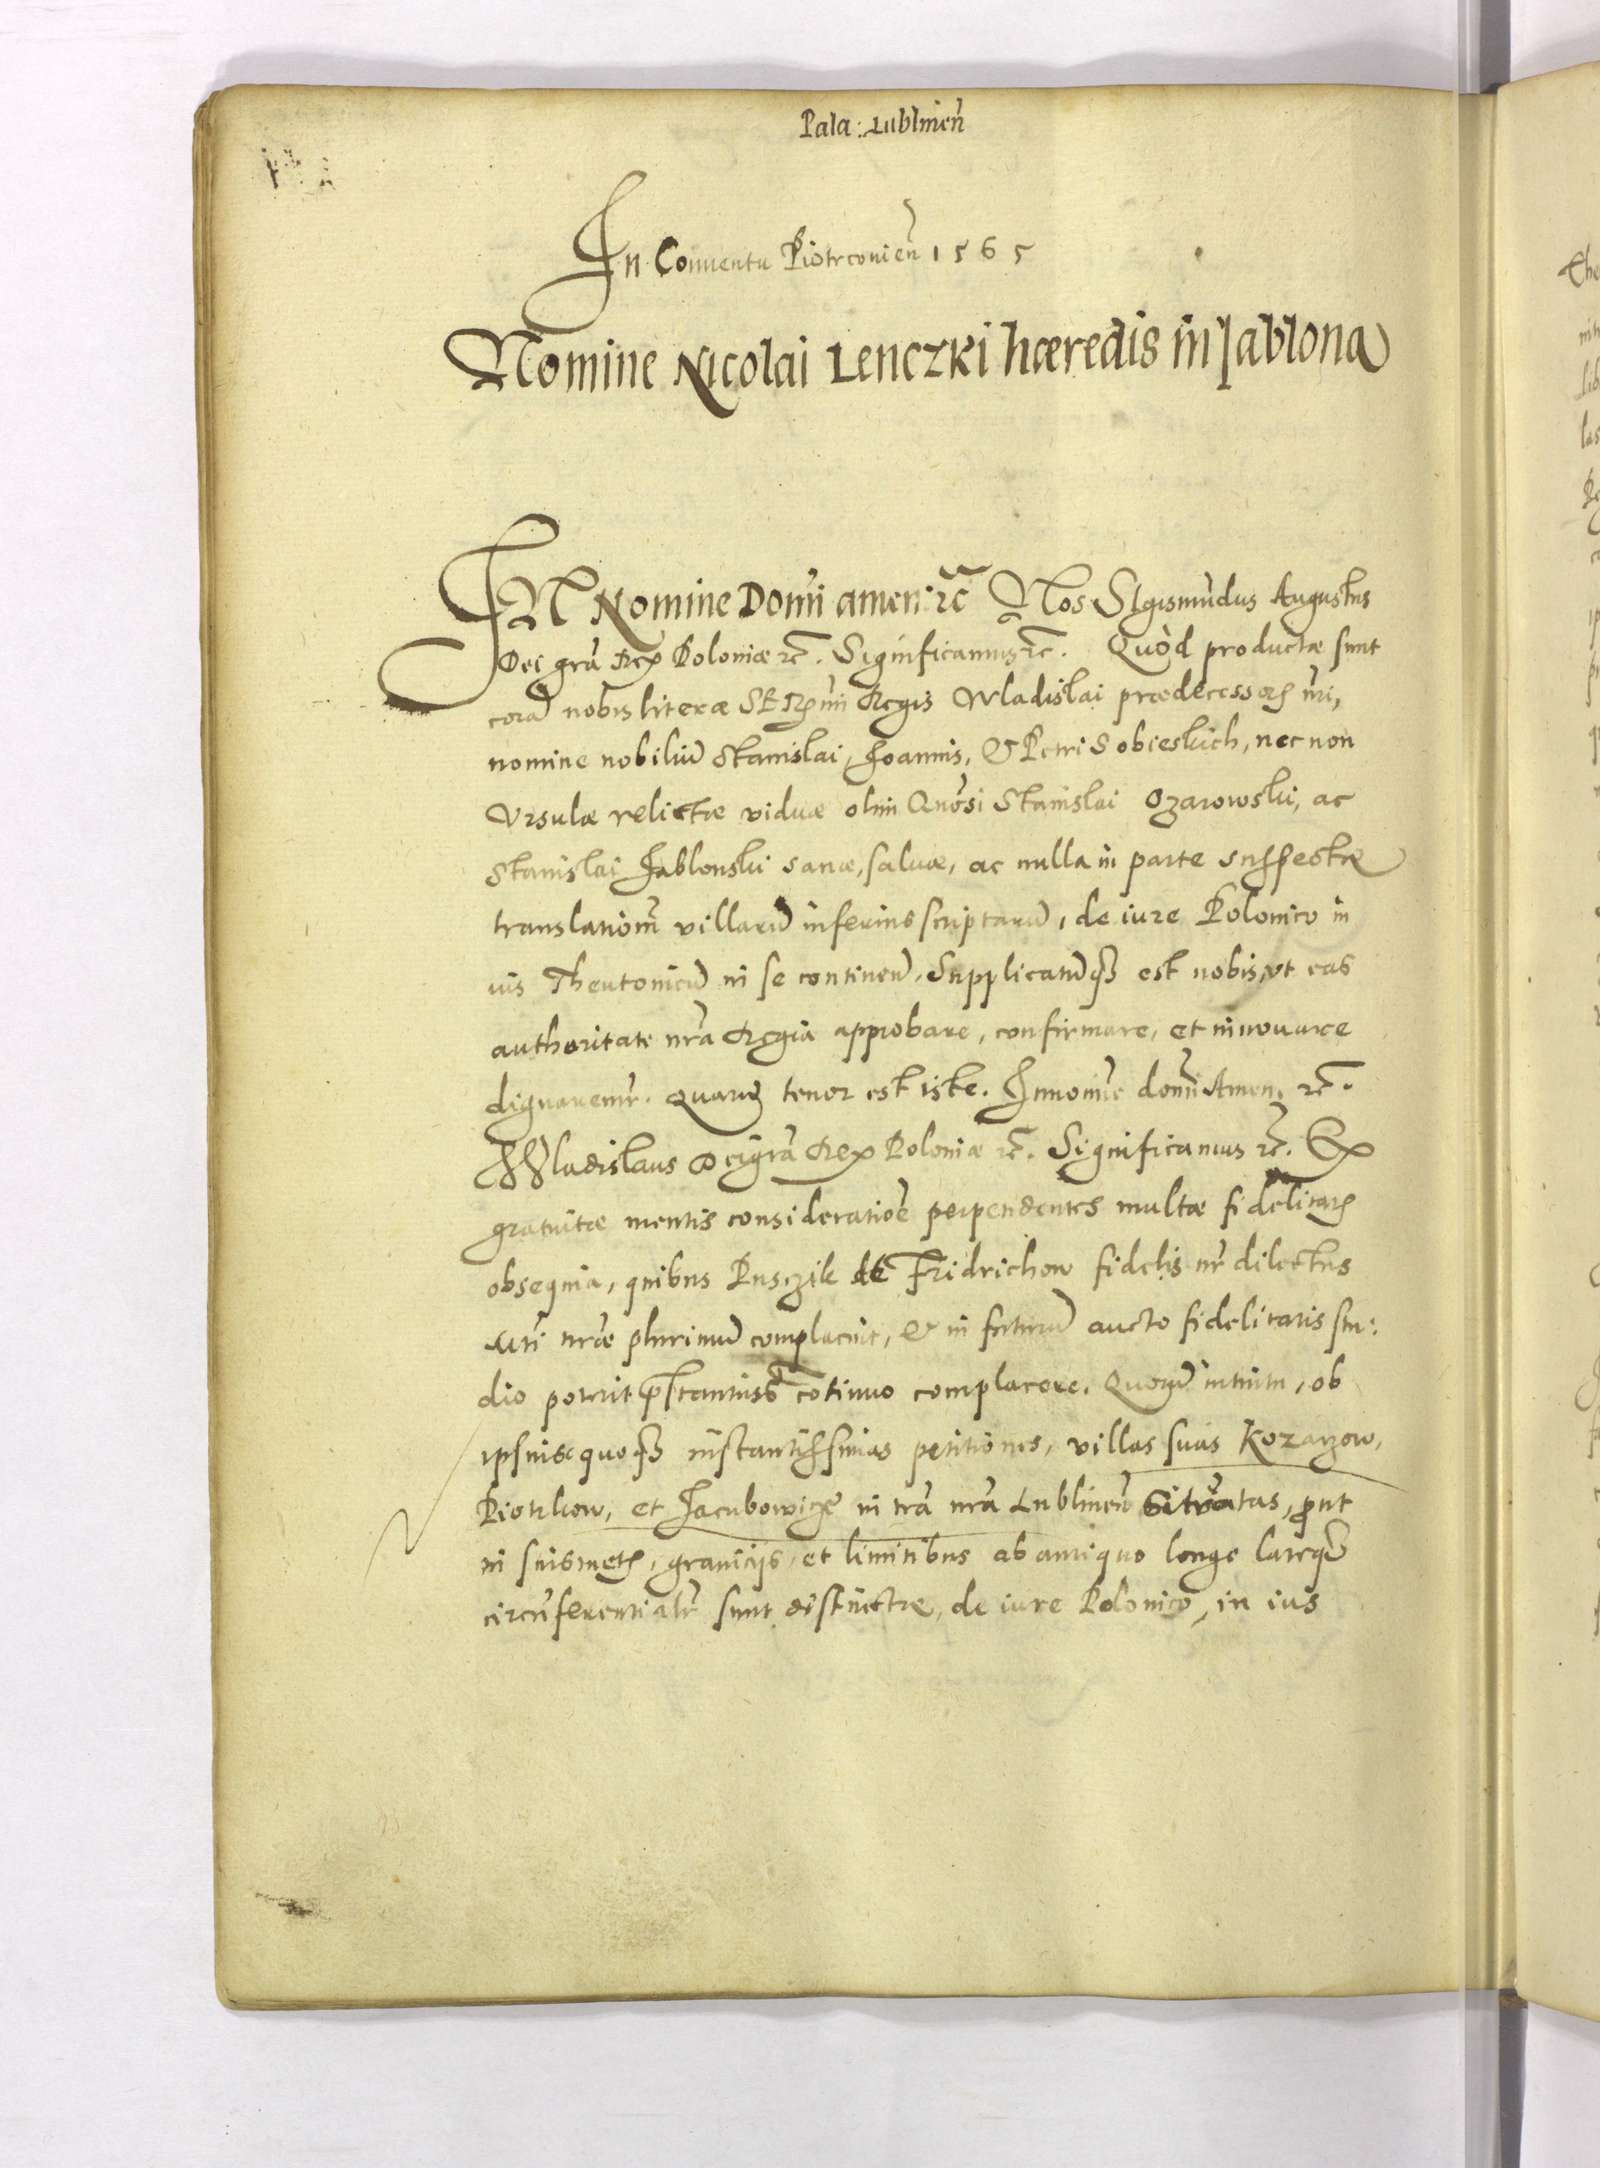 Pala: Lublineñ
In Conuentu Piotrconieñ 1565
Nomine Nicolai Lenczki hæredis in Jablona
IN Nomine Domĩ amen: &c̃ Nos Sigismũdus Augustus
Dei grã Rex Poloniæ &c̃. Significamus &c̃. Quòd productæ sunt
corã nobis literæ Regis Wladislai prædecessoris nr̃i,
nomine nobiliũ Stanislai, Joannis, & Petri Sobieskich, nec non
Vrsulæ relictæ viduæ olim Gnõsi Stanislai Ozarowski, ac
Stanislai Jablonski sanæ, saluæ, ac nulla in parte suspectæ
translationẽ villarũ inferius scriptarũ, de iure Polonico in
ius Theutonicũ in se continen̄. Supplicatũq₃ est nobis, vt eas
authoritate nr̃a Regia approbare, confirmare, et innouare
dignaremr̃. Quarũ tenor est iste. In nomĩe domĩ Amen. &c̃.
Wladislaus Dei grã Rex Poloniæ &c̃. Significamus &c̃. Ex
gratuitæ mentis consideratiõe perpendentes multæ fidelitatis
obsequia, quibus Pusczik de Fridrichow fidelis nr̃ dilectus
nr̃æ plurimũ complacuit, & in futurũ aucto fidelitatis stu:
dio poterit cõtinuo complacere. Quorũ intuitu, ob
ipsiusq₃ quoq₃ instantissimas petitiones, villas suas Kozarzow,
Piotrkow, et Jacubowicze in tr̃a nr̃a Lublineñ Situatas, prout
in suis metis, granicijs, et limitibus ab antiquo longe lateq₃
circũferentialr̃ sunt distinctæ, de iure Polonico, in ius